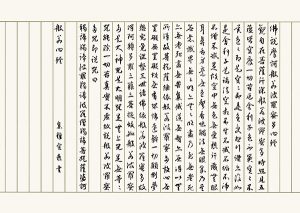 佛說摩訶般若波羅蜜多心經
觀自在菩薩行深般若波羅蜜多時照見五
蘊皆空度一切苦厄舍利子色不異空空不
異色色即是空空即是色受想行識亦復如
是舍利子是諸法空相不生不滅不垢不淨
不增不減是故空中無色無受想行識無眼
耳鼻舌身意無色聲香味觸法無眼界乃至
無意識界無無明亦無無明盡乃至無老死
亦無老死盡無苦集滅道無智亦無得以無
所得故菩提薩埵依般若波羅蜜多故心無
罣礙無罣礙故無有恐怖遠離顛倒夢
想究竟涅槃三世諸佛依般若波羅蜜多故
得阿耨多羅三藐三菩提故知般若波羅蜜
多是大神咒是大明咒是無上咒是無等等
咒能除一切苦真實不虛故說般若波羅蜜多
咒即說咒曰
揭諦揭諦波羅揭諦波羅僧揭諦菩提薩婆訶
般若心經